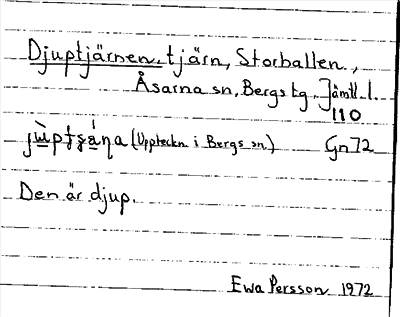 Djuptjärnen, tjärn, Storballen,
Åsarna sn, Bergs tg, Jämtl. l.
110
(Uppteckn i Bergs sn.) Gn72
Den är djup.
Ewa Persson 1972